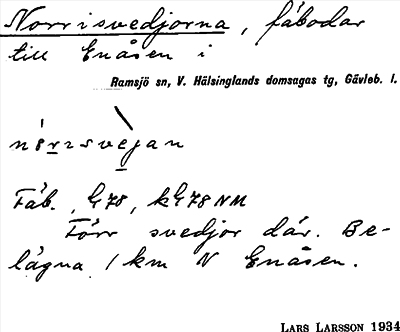 Norrisvedjorna, fäbodar
till Enåsen i
Ramsjö sn, V. Hälsinglands domsagas tg, Gävleb. l.
Fäb., G78, kG78NM
Förr svedjor där. Be-
lägna 1 km N Enåsen.
LARS LARSSON 1934